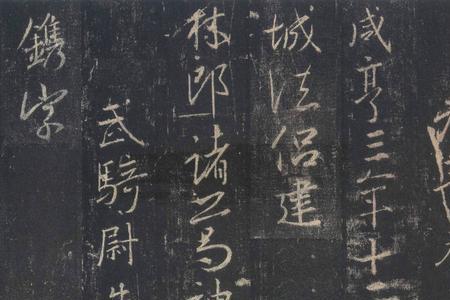 咸亨三年十二
城法侶建
林郎諸葛神
武騎尉
鐫字